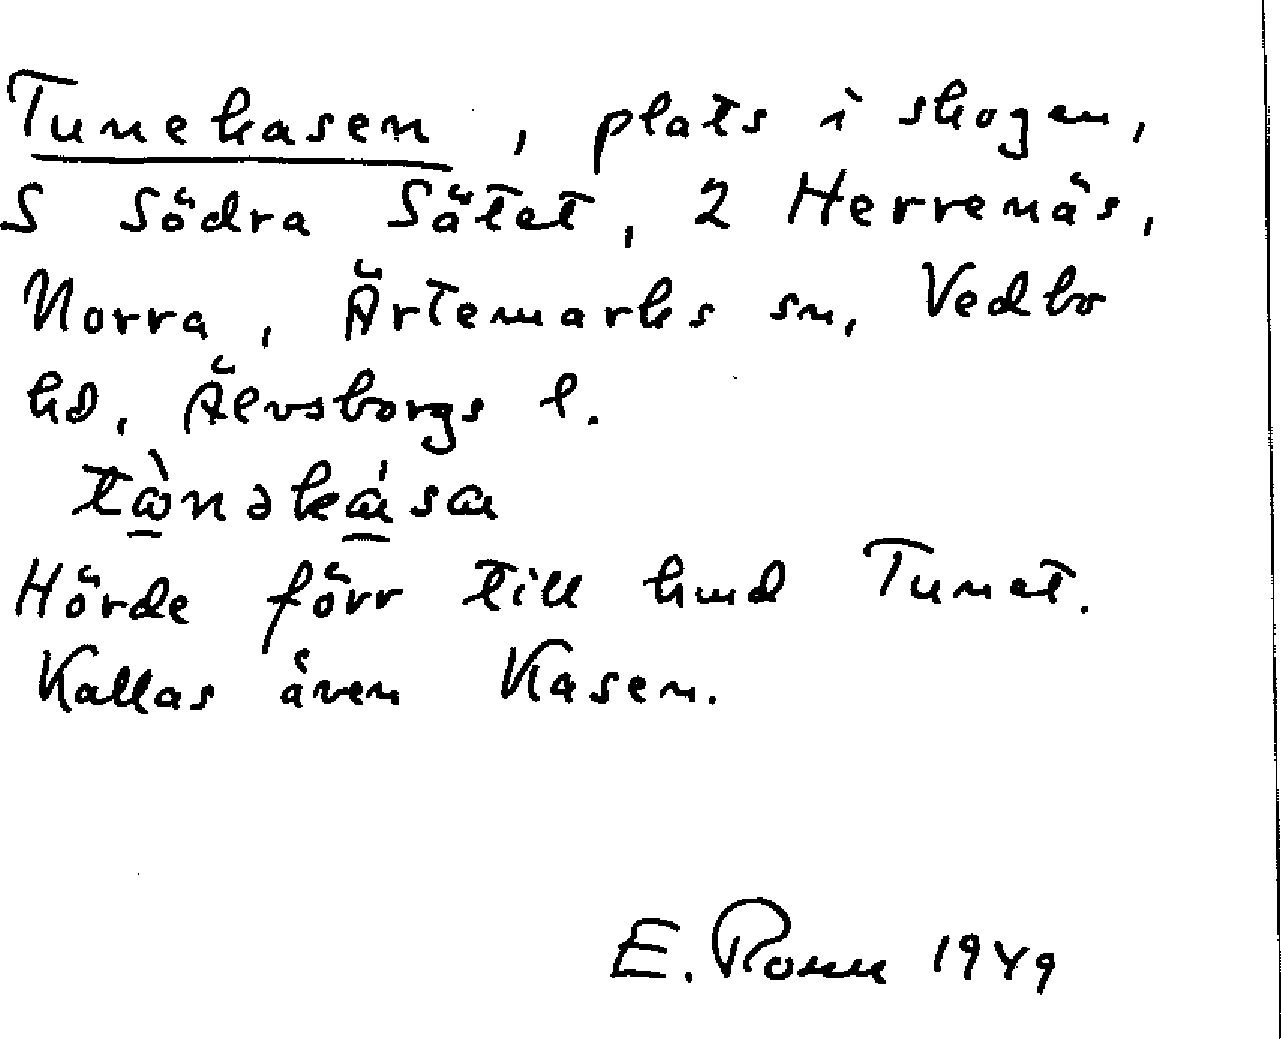 Tunekasen, plats i skogen,
S Södra Sätet, 2 Herrenäs,
Norra, Ärtemarks sn, Vedbo
hd, Älvsborgs l.
Hörde förr till hmd Tunet.
Kallas även Kasen.
E. Rosen 1949